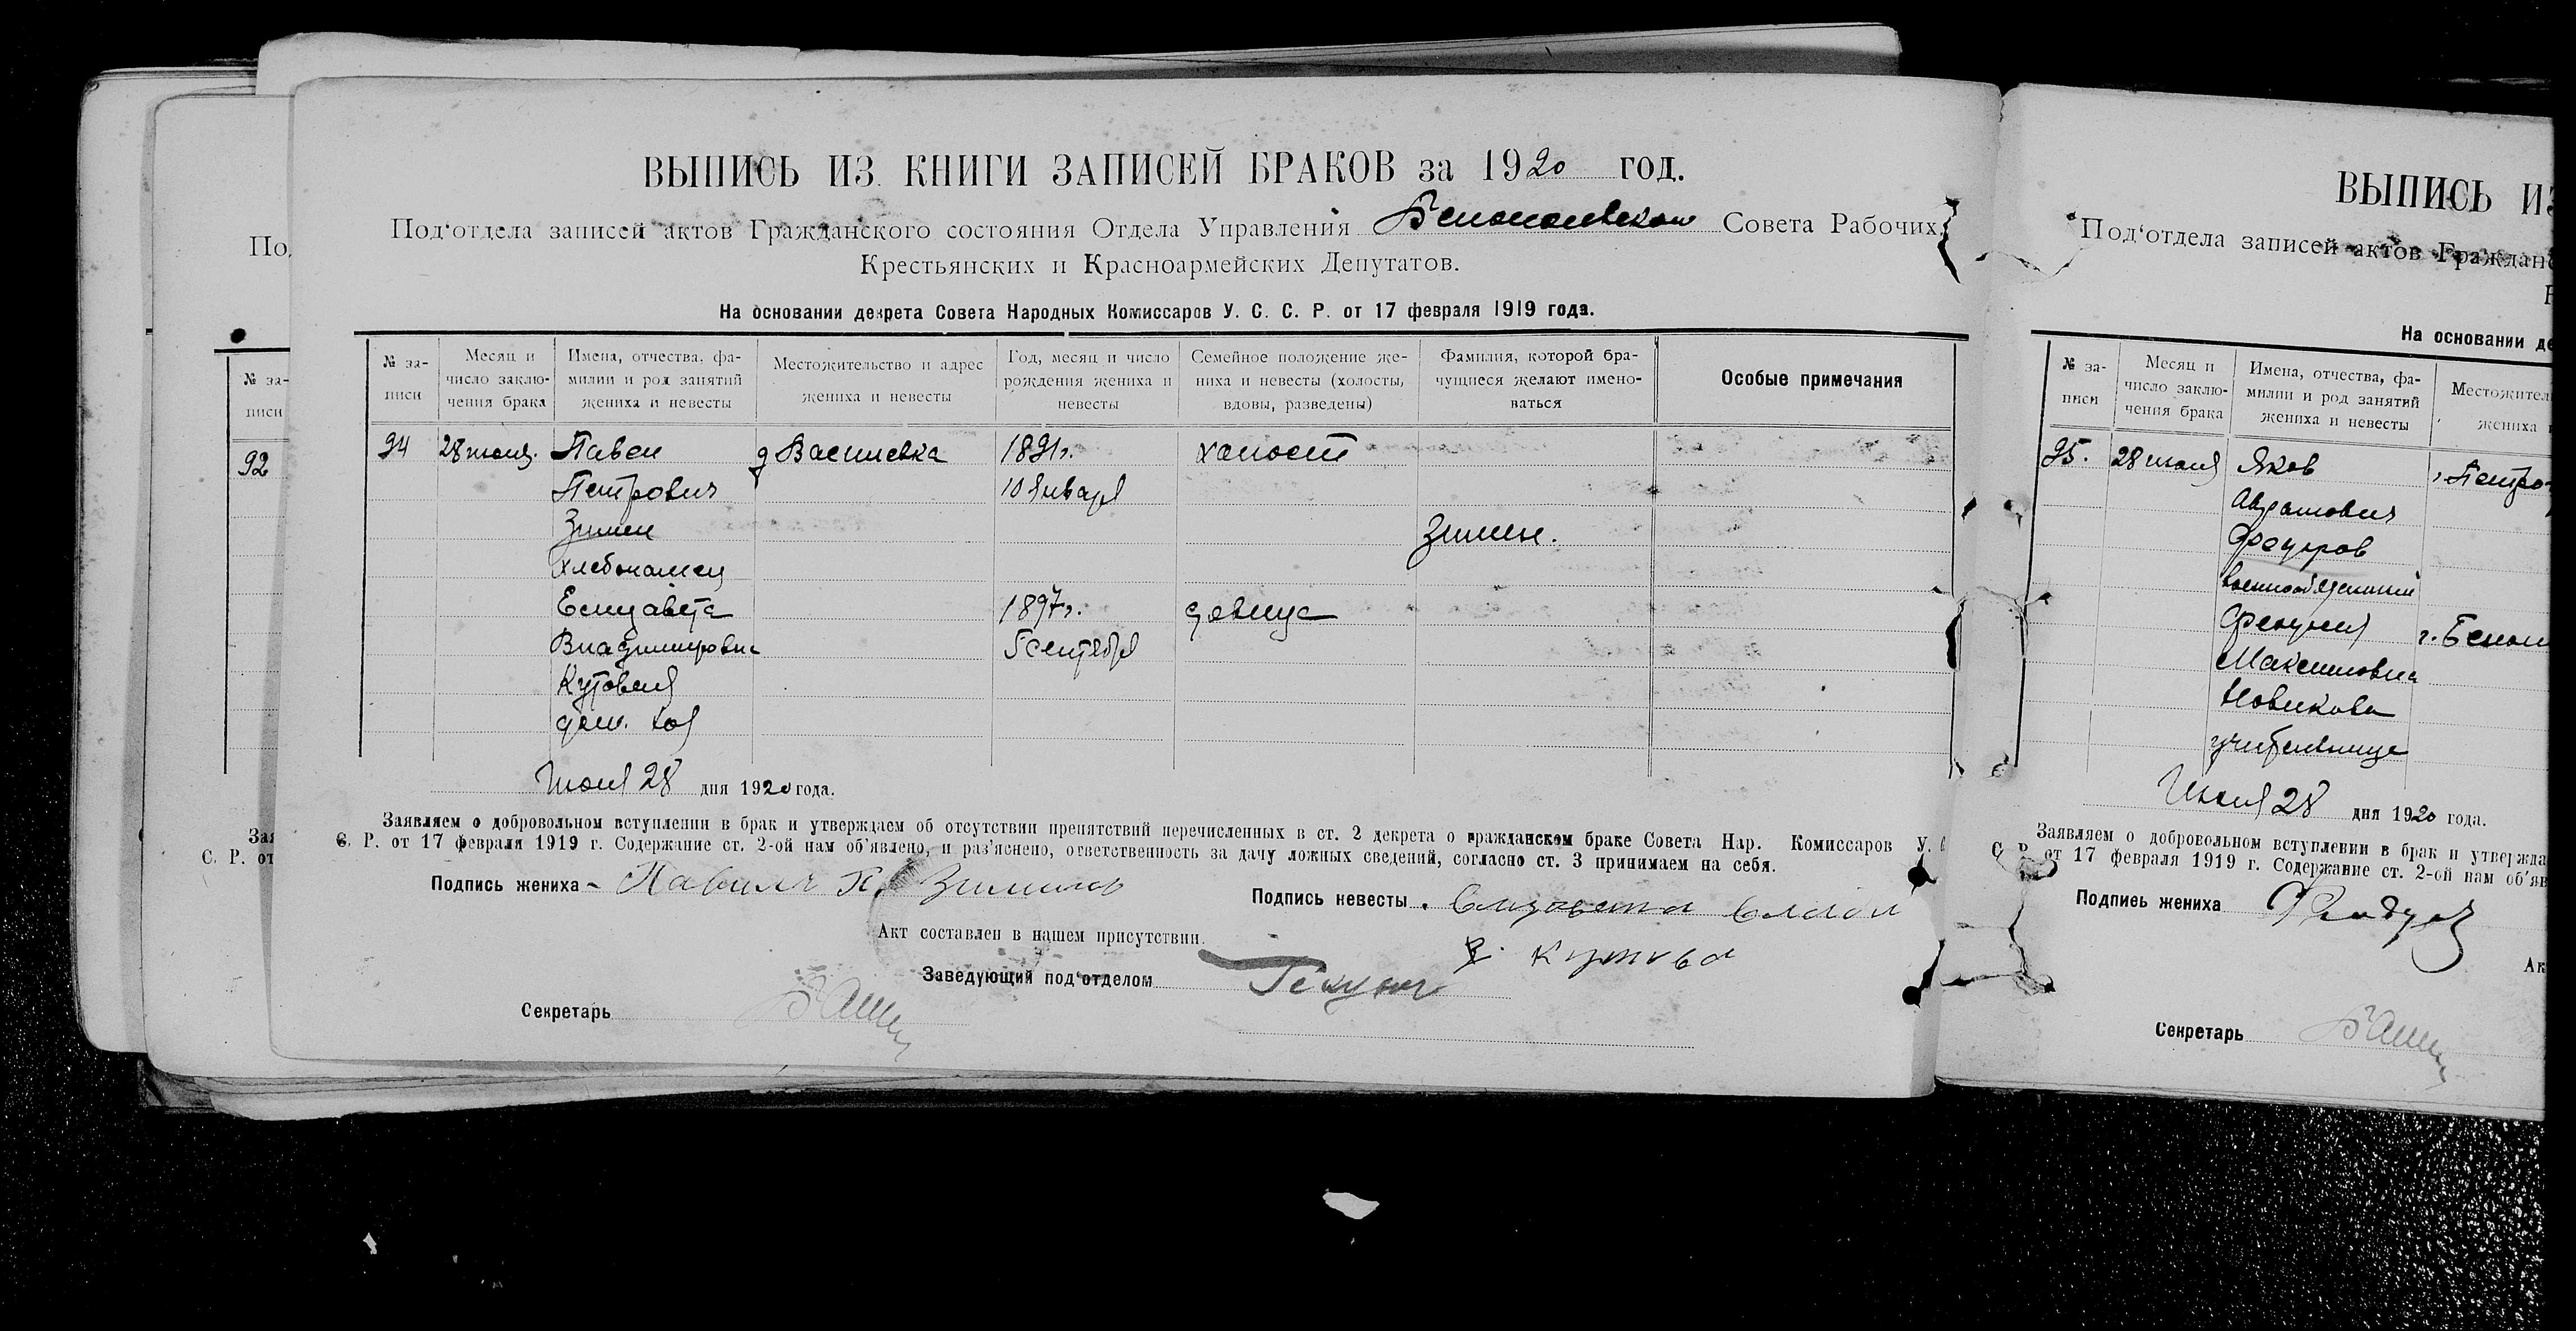 ВЫПИСЬ ИЗ КНИГИ ЗАПИСЕЙ БРАКОВ за 1920 год.
Под‘отдела записей актов Гражданского состояния Отдела Управления Совета Рабочих,
Крестьянских и Красноармейских Депутатов.
На основании декрета Совета Народных Комиссаров У. С. С. Р. от 17 февраля 1919 года.
№ за-
писи
Месяц и
число заклю-
чения брака
Имена, отчества, фа-
милии и род занятий
жениха и невесты
Местожительство и адрес
жениха и невесты
Год, месяц и число
рождения жениха и
невесты
Семейное положение же-
ниха и невесты (холосты,
вдовы, разведены)
Фамилия, которой бра-
чущиеся желают имено-
ваться
Особые примечания
94 28 июля Павел д Василевка 1891г. холост
Петрович 10 января
Зимен Зимен.
хлебопашец
Елизавета 1897г. девица
Владимировна 5 сентября
Кутовая
дом. хоз
Июля 28 дня 1920 года.
Заявляем о добровольном вступлении в брак и утверждаем об отсутствии препятствий перечисленных в ст. 2 декрета о гражданском браке Совета Нар. Комиссаров У.
С. Р. от 17 февраля 1919 г. Содержание ст. 2-ой нам об‘явлено, и раз‘яснено, ответственность за дачу ложных сведений, согласно ст. 3 принимаем на себя.
Подпись жениха
Подпись невесты Елизавета
Акт составлен в нашем присутствии.
Заведующий под‘отделом
Секретарь
По
№ за-
писи
92
Зая
С. Р. от
ВЫПИСЬ ИЗ
Под‘отдела записей актов Граждан
На основании де
№ за-
писи
Месяц и
число заклю-
чения брака
Имена, отчества, фа-
милии и род занятий
жениха и невесты
Местожител
жениха
95. 28 июля Яков Петро
Абрамович
Федоров
военнообязанный
г. Белоп
Максимовна
Новикова
учительница
Июля 28 дня 1920 года.
Заявляем о добровольном вступлении в брак и утвержда
С. Р. от 17 февраля 1919 г. Содержание ст. 2-ой нам об‘яв
Подпись жениха
Ак
Секретарь